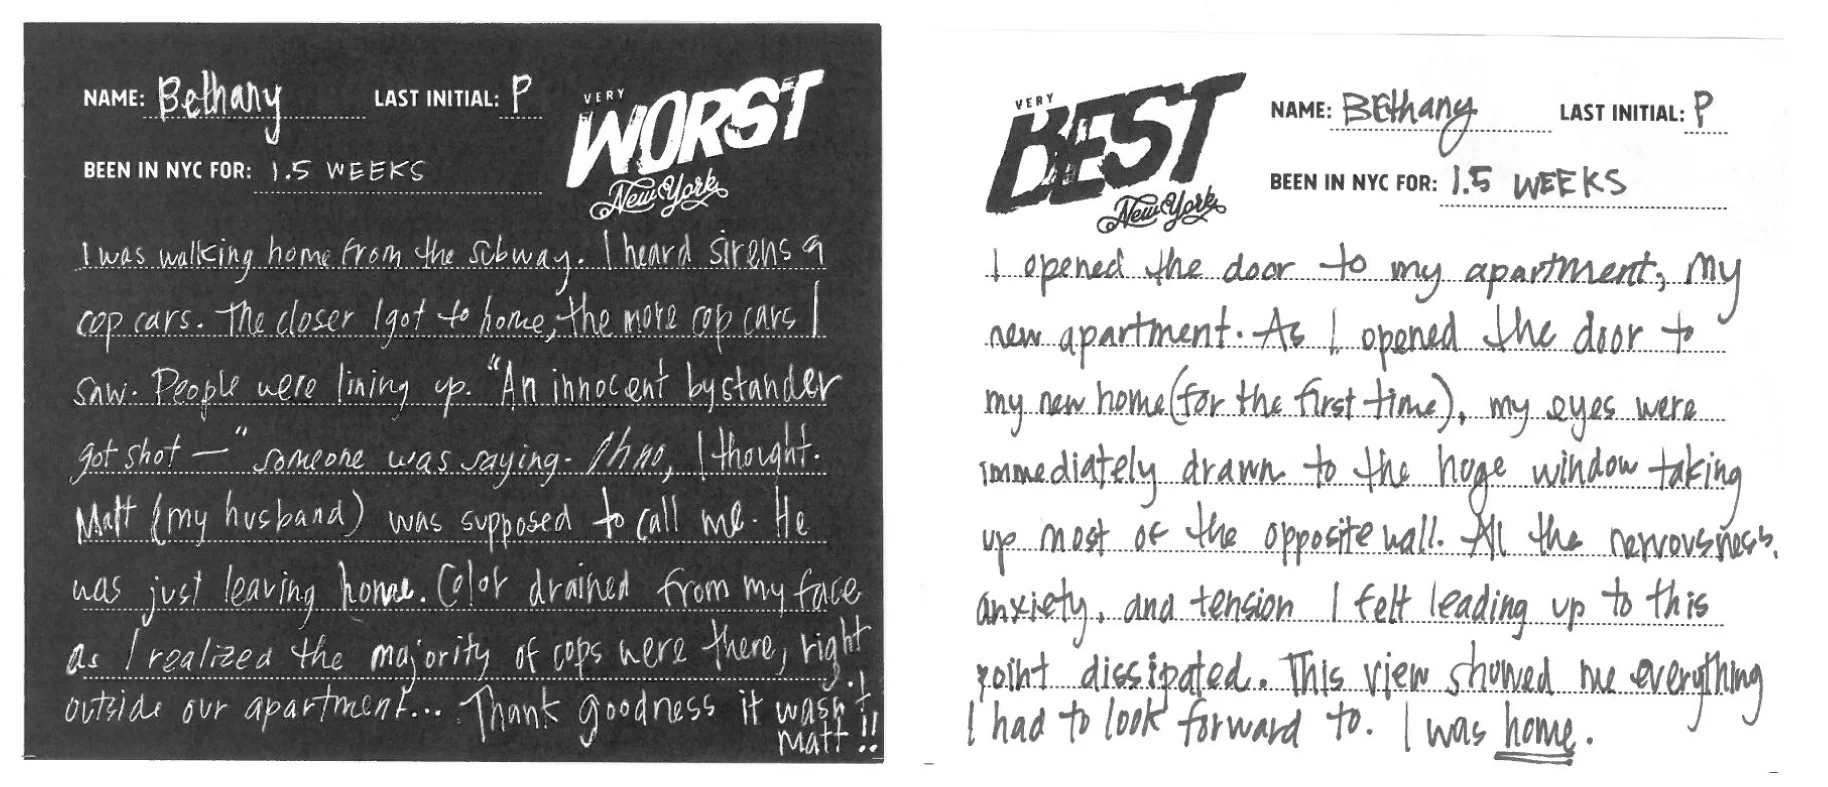 NAME: Bethany LAST INITIAL: P
VERY
WORST
New York
BEEN IN NYC FOR: 1.5 WEEKS
I was walking home from the subway. I heard sirens &
cop cars. The closer I got to home, the more cop cars I
saw. People were lining up. "An innocent bystander
got shot —" someone was saying. Oh no, I thought.
Matt (my husband) was supposed to call me. He
was just leaving home. Color drained from my face
as I realized the majority of cops were there, right
outside our apartment... Thank goodness it wasn't
Matt!!
VERY
BEST
New York
NAME: BEthany LAST INITIAL: P
BEEN IN NYC FOR: 1.5 WEEKS
I opened the door to my apartment, my
new apartment. As I opened the door to
my new home (for the first time), my eyes were
immediately drawn to the huge window taking
up most of the opposite wall. All the nervousness,
anxiety, and tension I felt leading up to this
point dissipated. This view showed me everything
I had to look forward to. I was home.